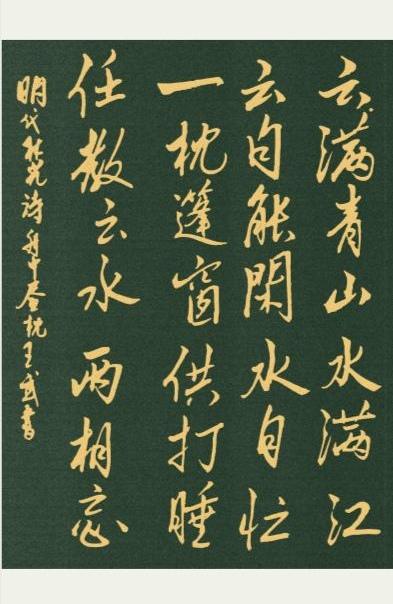 云满青山水满江
云自能闲水自忙
一枕篷窗供打睡
任教云水两相忘
明代 诗舟中昼枕王武书